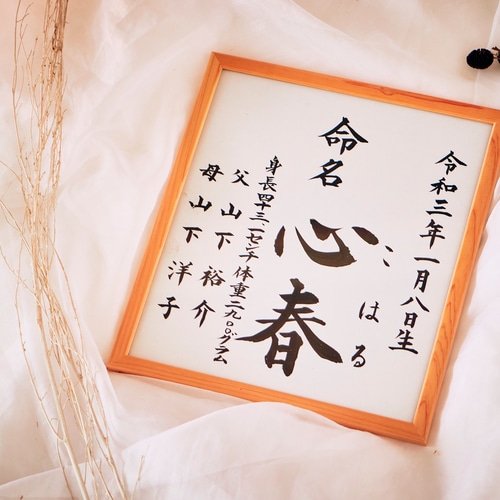 令和三年一月八日生
命名
心春
こはる
身長四十三一センチ 体重二九〇〇グラム
父 山下 裕介
母 山下 洋子